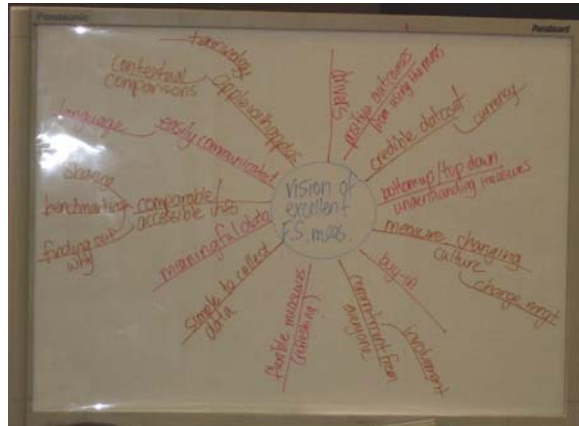 Panasonic
Panaboard
vision of
excellent
F.S. meas.
drivers
positive outcomes
from using the meas
credible dataset
currency
bottom up/top down
understanding measures
measure changing
culture
change mngt
buy-in
commitment from
everyone
involvement
flexible measures
(refreshing)
simple to collect
data
meaningful data
comparable/
accessible info
sharing
benchmarking
finding out
why
easily communicated
language
apples with apples
contextual
comparisons
terminology